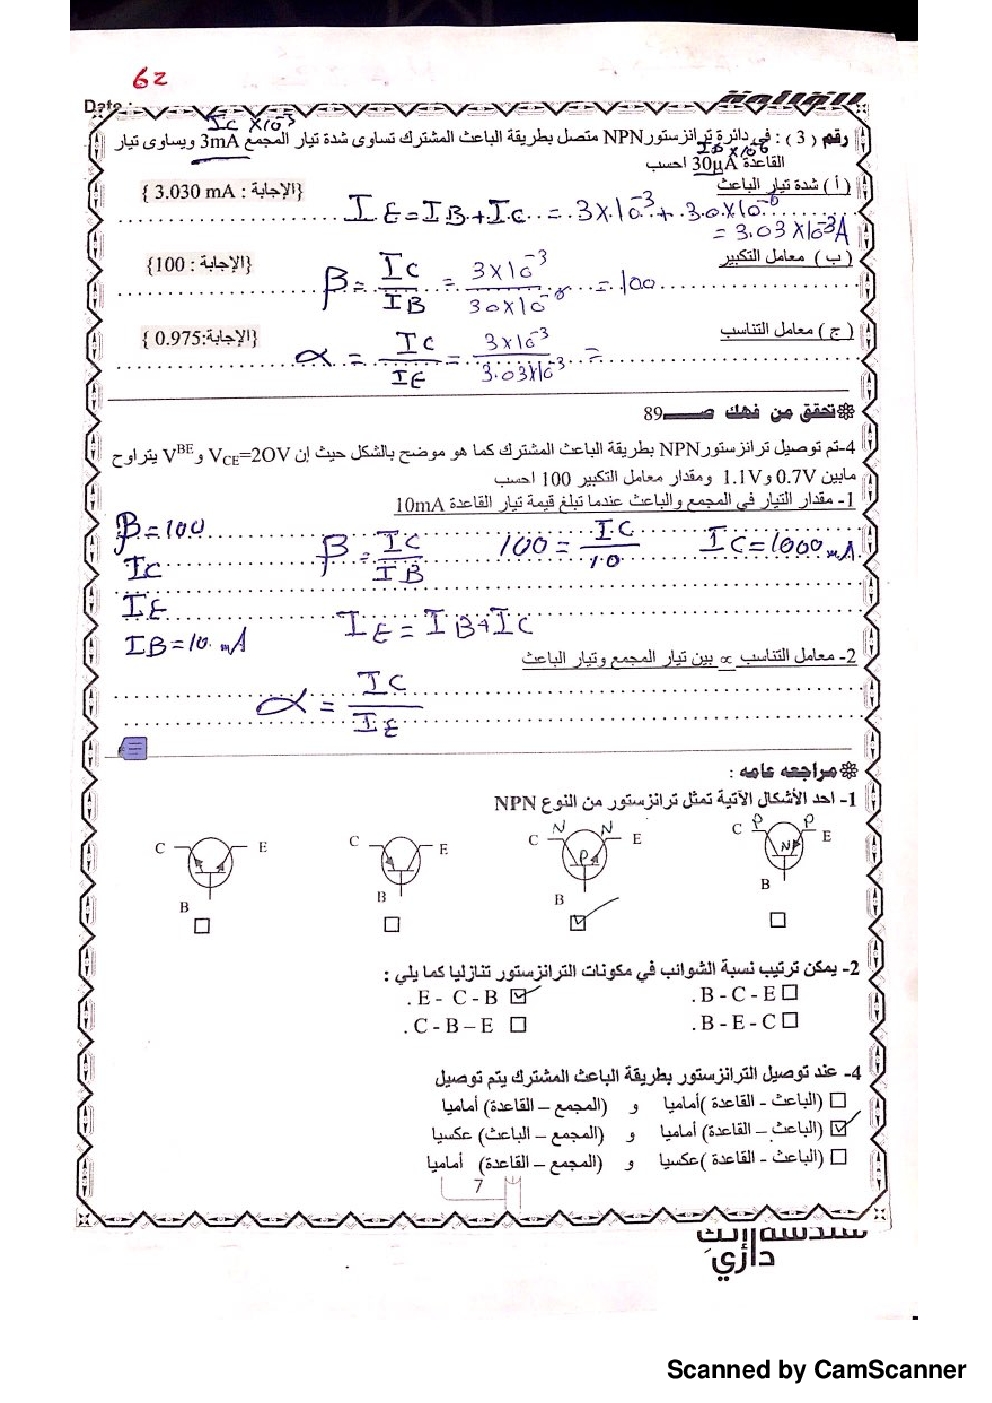 62
Date
رقم ( 3 ) : في دائرة ترانزستور NPN متصل بطريقة الباعث المشترك تساوى شدة تيار المجمع 3mA ويساوى تيار
IC ×10⁻³
القاعدة 30µA احسب
IB ×10⁻⁶
( أ ) شدة تيار الباعث
{ الإجابة : 3.030 mA }
IE = IB + IC = 3×10⁻³ + 30×10⁻⁶
= 3.03×10⁻³A
( ب ) معامل التكبير
{ الإجابة : 100 }
β = IC / IB = 3×10⁻³ / 30×10⁻⁶ = 100
( ج ) معامل التناسب
{ الإجابة:0.975 }
α = IC / IE = 3×10⁻³ / 3.03×10⁻³ =
تحقق من فهك صــــ89
4-تم توصيل ترانزستور NPN بطريقة الباعث المشترك كما هو موضح بالشكل حيث إن VCE=2OV و VBE يتراوح
مابين 0.7V و 1.1V ومقدار معامل التكبير 100 احسب
1- مقدار التيار في المجمع والباعث عندما تبلغ قيمة تيار القاعدة 10mA
β = 100
β = IC / IB
100 = IC / 10
IC = 1000 mA
IC
IE
IE = IB + IC
IB = 10 mA
2- معامل التناسب ∝ بين تيار المجمع وتيار الباعث
α = IC / IE
مراجعه عامه :
1- احد الأشكال الآتية تمثل ترانزستور من النوع NPN
C P P E N B
C N N E P B
C E B
C E B
2- يمكن ترتيب نسبة الشوائب في مكونات الترانزستور تنازليا كما يلي :
B - C - E .
E - C - B .
B - E - C .
C - B – E .
4- عند توصيل الترانزستور بطريقة الباعث المشترك يتم توصيل
(الباعث - القاعدة )أماميا و (المجمع – القاعدة) أماميا
(الباعث - القاعدة) أماميا و (المجمع – الباعث) عكسيا
(الباعث - القاعدة )عكسيا و (المجمع – القاعدة) أماميا
7
Scanned by CamScanner